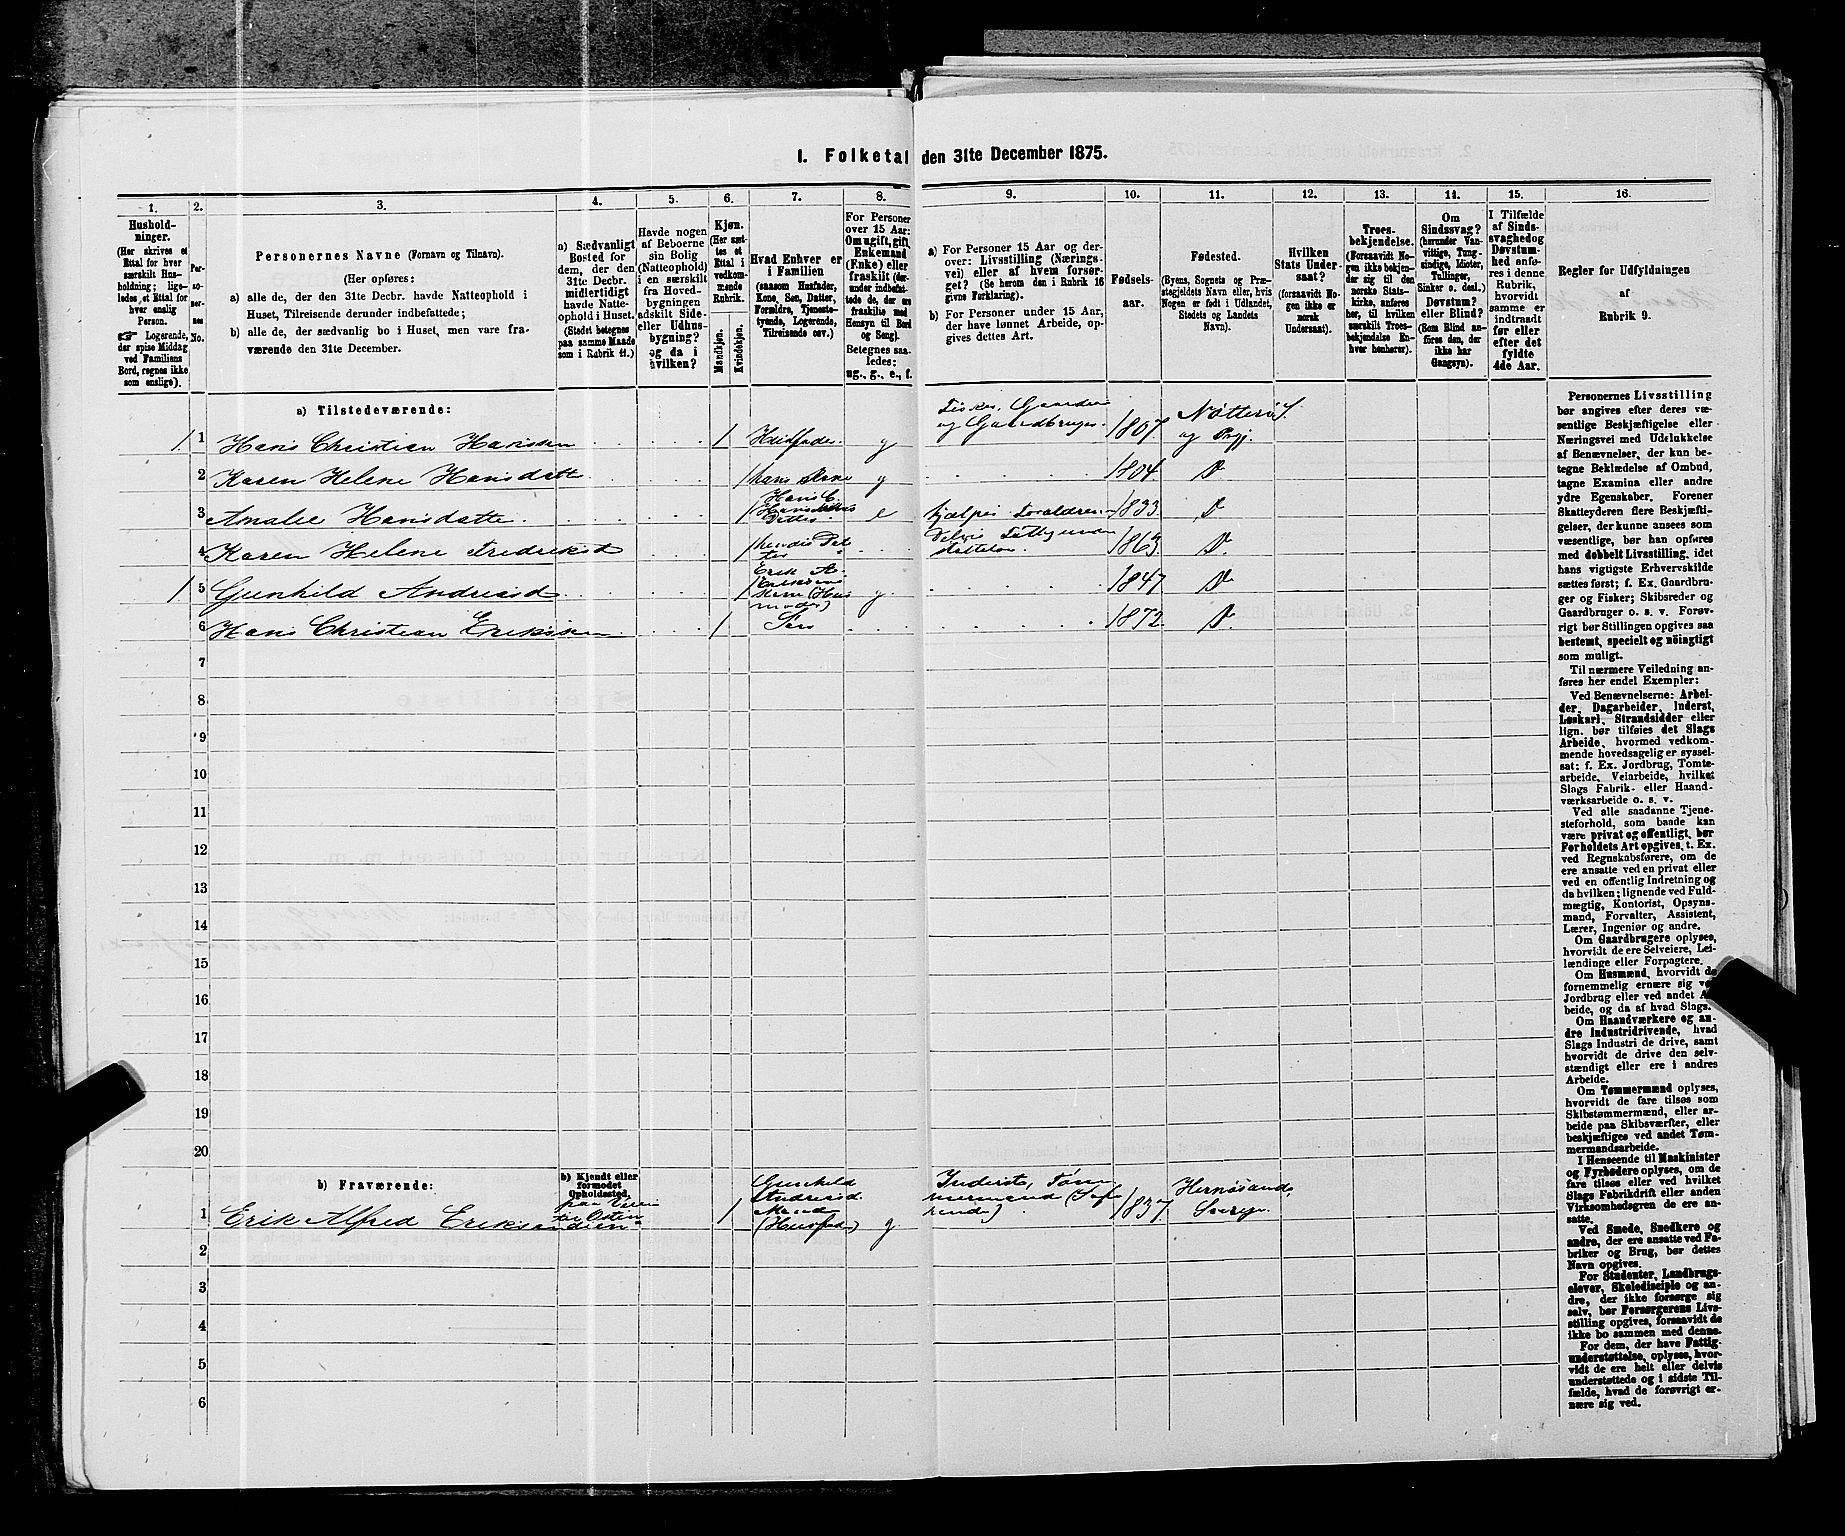 1. Folketal den 31te December 1875.
1. 2. 3. 4. 5. 6. 7. 8. 9. 10. 11. 12. 13. 14. 15. 16.
Hushold-
ninger.
(Her skrives et
Ettal for hver
særskilt Hus-
holdning; lige-
ledes et Ettal for
hver enslig
Person.
Logerende,
der spise Middag
ved Familiens
Bord, regnes ikke
som enslige).
Per-
so-
ner-
nes
No.
Personernes Navne (Fornavn og Tilnavn).
(Her opføres:
a) alle de, der den 31te Decbr. havde Natteophold i
Huset, Tilreisende derunder indbefattede;
b) alle de, der sædvanlig bo i Huset, men vare fra-
værende den 31te December.
a) Sædvanligt
Bosted for
dem, der den
31te Decbr.
midlertidigt
havde Natte-
ophold i Huset.
(Stedet betegnes
paa samme Maade
som i Rubrik 11.)
Havde nogen
af Beboerne
sin Bolig
(Natteophold)
i en særskilt
fra Hoved-
bygningen
adskilt Side-
eller Udhus-
bygning?
og da i
hvilken?
Kjøn.
(Her sæt-
tes et
Ettal i
vedkom-
mende
Rubrik.
Mandkjøn.
Kvindekjøn.
Hvad Enhver er
i Familien
(saasom Husfader,
Kone, Søn, Datter,
Forældre, Tjeneste-
tyende, Logerende,
Tilreisende osv.)
For Personer
over 15 Aar:
Om ugift, gift,
Enkemand
(Enke) eller
fraskilt (der-
under indbefat-
tede de, der ere
fraskilte med
Hensyn til Bord
og Seng).
Betegnes saa-
ledes:
ug., g., e., f.
a) For Personer 15 Aar og der-
over: Livsstilling (Nærings-
vei) eller af hvem forsør-
get? (Se herom den i Rubrik 16
givne Forklaring).
b) For Personer under 15 Aar,
der have lønnet Arbeide, op-
gives dettes Art.
Fødsels-
aar.
Fødested.
(Byens, Sognets og Præ-
stegjeldets Navn eller, hvis
Nogen er født i Udlandet,
Stedets og Landets
Navn).
Hvilken
Stats Under-
saat?
(forsaavidt No-
gen ikke er
norsk
Undersaat).
Troes-
bekjendelse.
(Forsaavidt No-
gen ikke bekjen-
der sig til den
norske Stats-
kirke, anføres
her, til hvilken
særskilt Troes-
bekjendelse En-
hver henhører).
Om
Sindssvag?
(herunder Van-
vittige, Tung-
sindige, Idioter,
Tullinger,
Sinker o. desl.)
Døvstum?
eller Blind?
(Som Blind an-
føres den, der
ikke har
Gangsyn).
I Tilfælde
af Sinds-
svaghed og
Døvstum-
hed anfø-
res i denne
Rubrik,
hvorvidt
samme er
indtraadt
før eller
efter det
fyldte
4de Aar.
Regler for Udfyldningen
af
Rubrik 9.
a) Tilstedeværende:
1 1 Hans Christian Hansen 1 Husfader g Fisker, Gaardeier og Gaardbruger 1807 Nøtterø S. og Prgj.
2 Karen Helene Hansdatt 1 hans Kone g 1804 D
3 Amalie Hansdatte 1 Hans C. Hansens Datter e hjælper Forældrene 1833 D
4 Karen Helene Fredriksd 1 hendes Datter Delvis Fattigunderstøttelse 1863 D
1 5 Gunhild Andreasd 1 Erik A. Eriksens Kone (Husmoder) g 1847 D
6 Hans Christian Eriksen 1 Søn 1872 D
7
8
9
10
11
12
13
14
15
16
17
18
19
20
b) Fraværende:
b) Kjendt eller
formodet
Opholdssted.
1 Erik Alfred Eriksen 1 Gunhild Andreasd. Mand (Husfader) g Inderst, Tømmermand (Søfarende) 1837 Hernösand, Sverige
2
3
4
5
6
Personernes Livsstilling
bør angives efter deres væ-
sentlige Beskjæftigelse eller
Næringsvei med Udelukkelse
af Benævnelser, der kun be-
tegne Beklædelse af Ombud,
tagne Examina eller andre
ydre Egenskaber. Forener
Skatteyderen flere Beskjæfti-
gelser, der kunne ansees som
væsentlige, bør han opføres
med dobbelt Livsstilling, idet
hans vigtigste Erhvervskilde
sættes først; f. Ex. Gaardbru-
ger og Fisker; Skibsreder og
Gaardbruger o. s. v. Forøv-
rigt bør Stillingen opgives saa
bestemt, specielt og nöiagtigt
som muligt.
Til nærmere Veiledning an-
føres her endel Exempler:
Ved Benævnelserne: Arbei-
der, Dagarbeider, Inderst,
Løskarl, Strandsidder eller
lign. bør tilføies det Slags
Arbeide, hvormed vedkom-
mende hovedsagelig er syssel-
sat; f. Ex. Jordbrug, Tomte-
arbeide, Veiarbeide, hvilket
Slags Fabrik- eller Haand-
værksarbeide o. s. v.
Ved alle saadanne Tjene-
steforhold, som baade kan
være privat og offentligt, bør
Forholdets Art opgives, t. Ex.
ved Regnskabsførere, om de
ere ansatte ved en privat eller
ved en offentlig Indretning og
da hvilken; lignende ved Fuld-
mægtig, Kontorist, Opsyns-
mand, Forvalter, Assistent,
Lærer, Ingeniør og andre.
Om Gaardbrugere oplyses,
hvorvidt de ere Selveiere, Lei-
lændinge eller Forpagtere.
Om Husmænd, hvorvidt de
fornemmelig ernære sig ved
Jordbrug eller ved andet Ar-
beide, og da af hvad Slags.
Om Haandværkere og an-
dre Industridrivende, hvad
Slags Industri de drive, samt
hvorvidt de drive den selv-
stændigt eller ere i andres
Arbeide.
Om Tømmermænd oplyses,
hvorvidt de fare tilsøs som
Skibstømmermænd, eller ar-
beide paa Skibsværfter, eller
beskjæftiges ved andet Tøm-
mermandsarbeide.
I Henseende til Maskinister
og Fyrbødere oplyses, om de
fare tilsøs eller ved hvilket
Slags Fabrikdrift eller anden
Virksomhedsgren de ere an-
satte.
Ved Smede, Snedkere og
andre, der ere ansatte ved Fa-
briker og Brug, bør dettes
Navn opgives.
For Studenter, Landbrugs-
elever, Skoledisciple og an-
dre, der ikke forsørge sig
selv, bør Forsørgerens Livs-
stilling opgives, forsaavidt de
ikke bo sammen med denne.
For dem, der have Fattig-
understøttelse, oplyses, hvor-
vidt de ere helt eller delvis
understøttede og i sidste Til-
fælde, hvad de forøvrigt er-
nære sig ved.